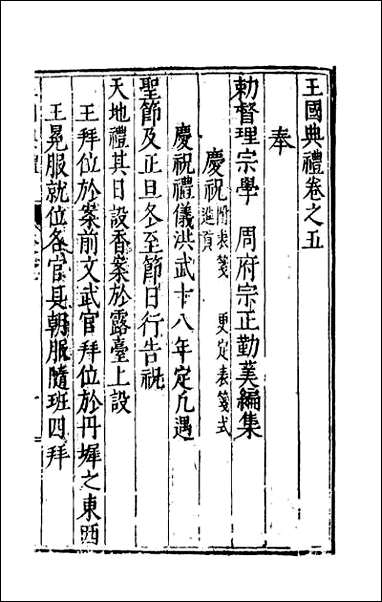 王國典禮卷之五
奉
勅督理宗學 周府宗正勤羙編集
慶祝 附表箋 進賀 更定表箋式
慶祝禮儀洪武十八年定凡遇
聖節及正旦冬至節日行告祝
天地禮其日設香案於露臺上設
王拜位於案前文武官拜位於丹墀之東西
王冕服就位各官具朝服隨班四拜